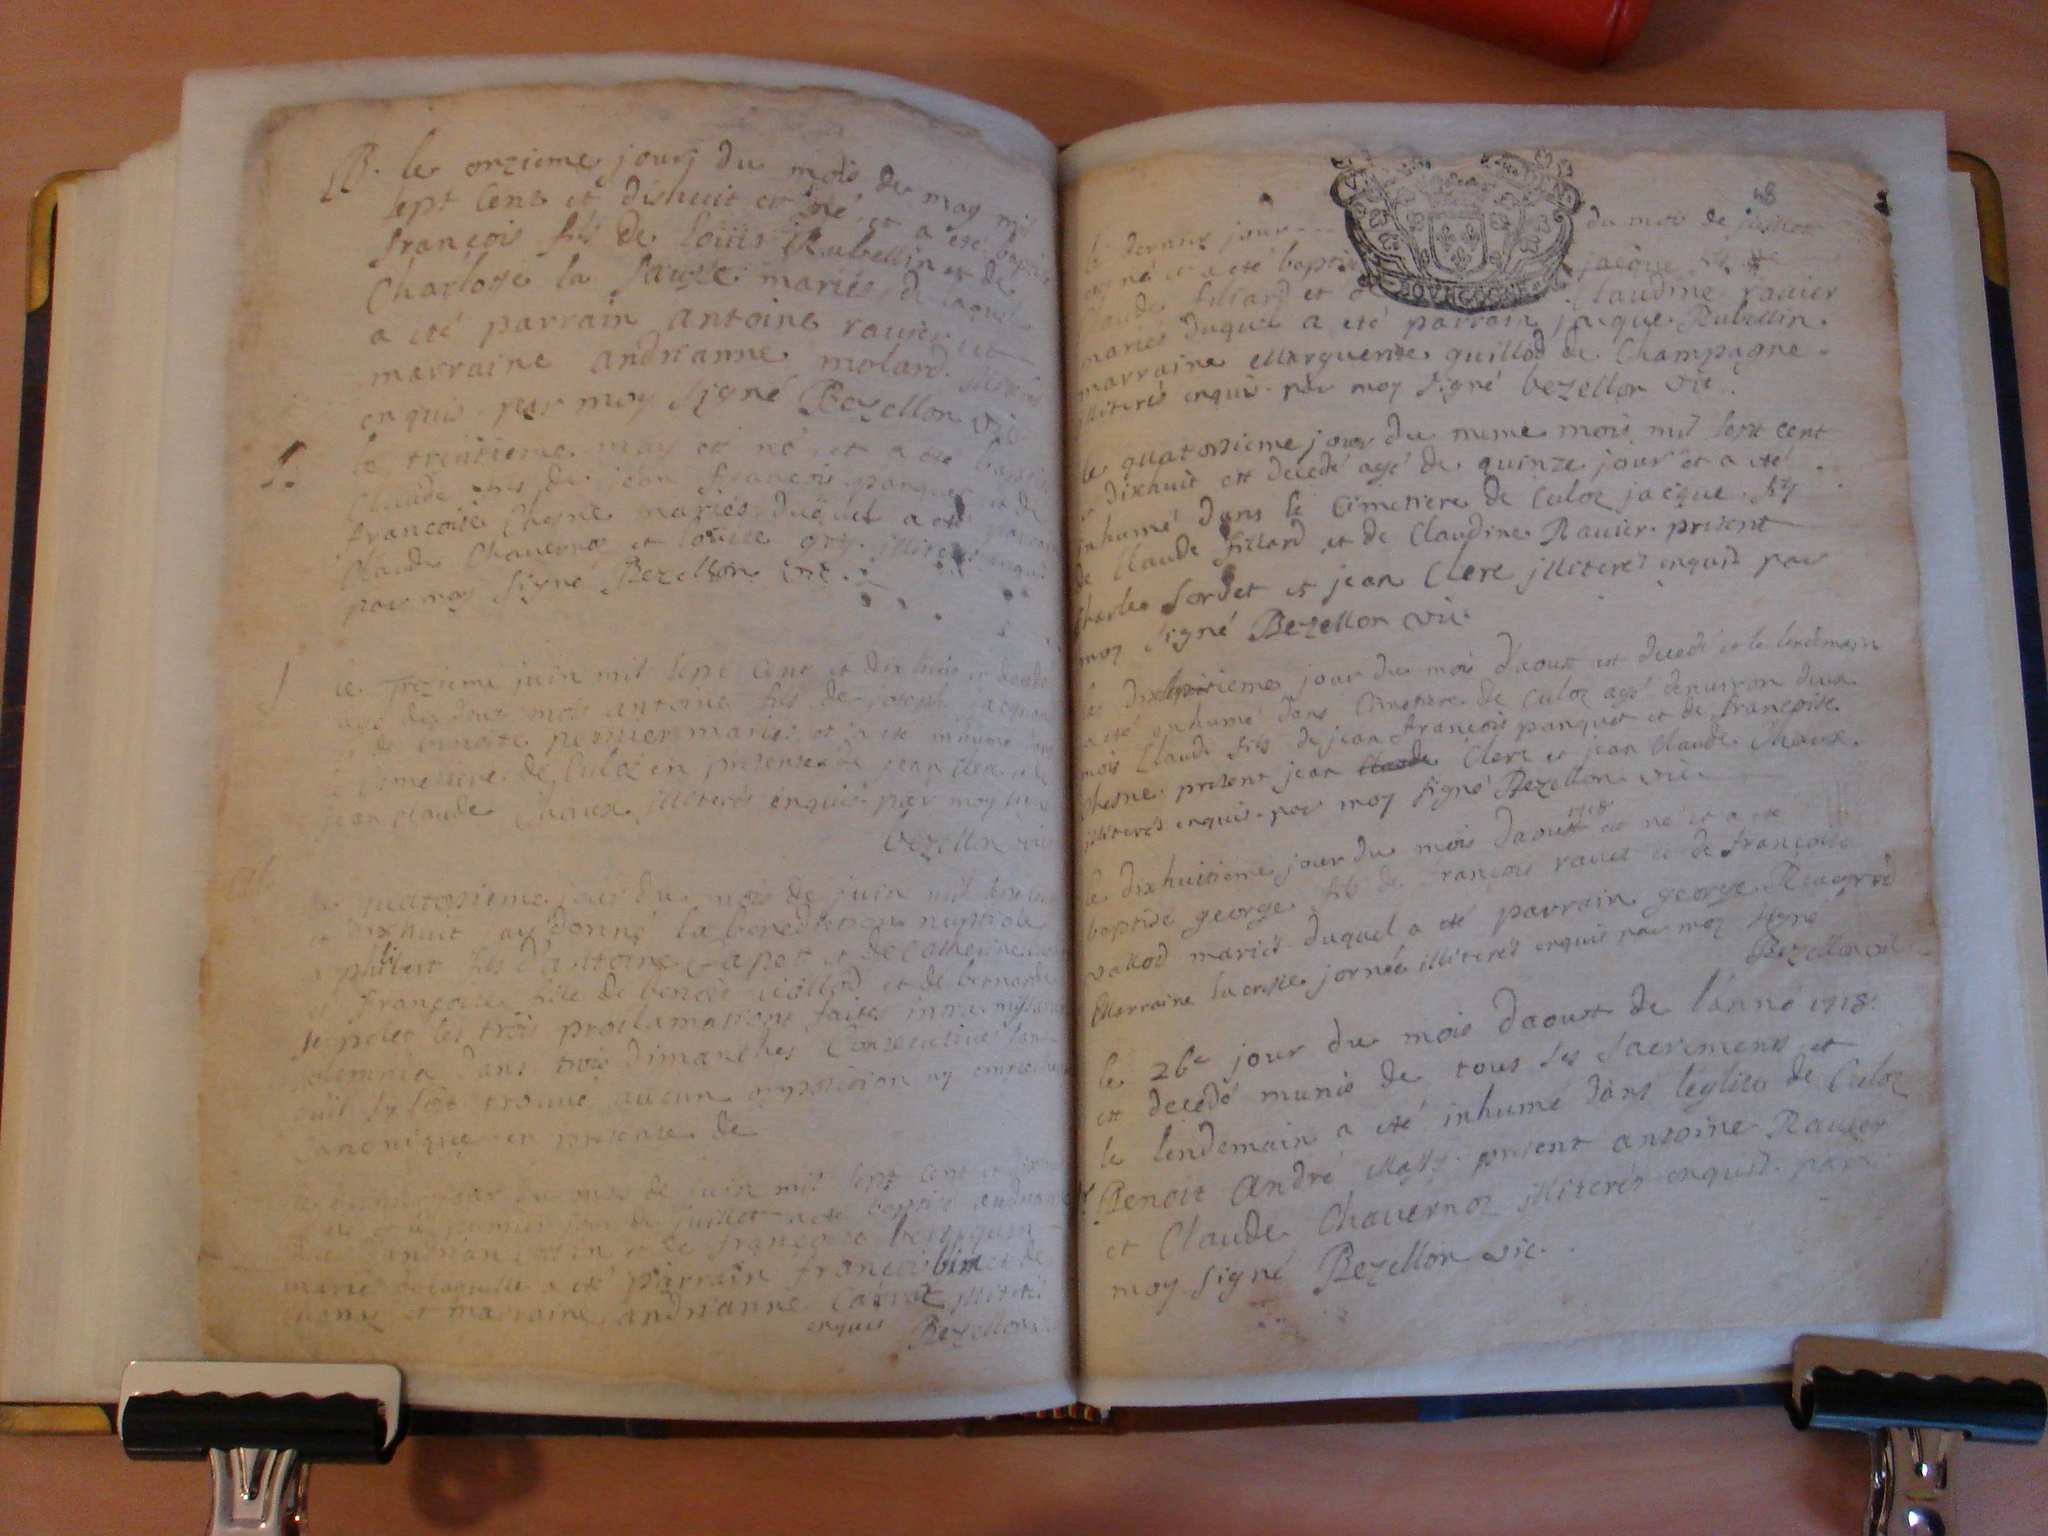 B. le onzieme jour du mois de may mil
sept cens et dishuit est né et a été baptisé
françois fils de loüis Rubellin et de
Charlotte la mariés, de laquel
a été parrain antoine rauier et
marraine andrianne molard illiteres
enquis par moy signé Bezellon vic
le trentieme may est né et a été baptisé
Claude fils de jean françois panquet et de
francoise Chesne mariés duquel a été parrain
Claude Chauernoz et loüise illiterés enquis
par moy signé Bezellon vic.
le Trezieme juin mil sept Cent et dix huit est decedé
agé dishuit mois antoine fils de joseph jacquet
et de pernier mariés et a été inhumé dans
le Cimetiere de Culoz en presence de jean Clerc et de
jean Claude Chaux illiterés enquis par moy signé
bezellon vic
le quatorsieme jour du mois de juin mil sept cent
et dixhuit jay donné la benediction nuptiale
a philibert fils d'antoine et de Catherine
et françoise fille de benoit et de bernarde
les trois proclamations faites intra missarum
solemnia dans trois dimanches Consecutives sans
quil sy soit trouué aucun opposition ny empechement
Canonique en presence de
le jour du mois de juin mil sept cent et dixhuit
est né et le premier jour de juillet a été baptisé andrianne
fille dandrian et de françoise
mariés de laquelle a été parrain françois et de
et marraine andrianne illiterés
enquis Bezellon vic
48
le dernier jour --- du mois de juillet
est né et a été baptisé jacque fils de
Claude fillard et de Claudine rauier
mariés duquel a été parrain jacque Rubellin
marraine Marguerite guillod de Champagne
illiterés enquis par moy signé bezellon vic.
le quatorsieme jour du meme mois mil sept cent
et dixhuit est decedé agé de quinze jour et a été
inhumé dans le Cimetiere de Culoz jacque fils
de Claude fillard et de Claudine Rauier present
Charles Sordet et jean Clerc illiterés enquis par
moy signé Bezellon vic
le dixhuitieme jour du mois daoust est decedé et le lendemain
a été inhumé dans Cimetiere de Culoz agé denuiron deux
mois Claude fils de jean françois panquet et de françoise
Chesne present jean Claude Clerc et jean Claude Chaux
illiterés enquis par moy signé Bezellon vic
le dixhuitieme jour du mois daoust 1718 est né et a été
baptisé george fils de françois rauet et de françoise
vallod mariés duquel a été parrain george
Marraine lucresse jornée illiterés enquis par moy signé
Bezellon vic
le 26e jour du mois daoust de lanné 1718
est decedé munis de tous ses sacrements et
le lendemain a été inhumé dans leglise de Culoz
Benoit André present antoine Rauier
et Claude Chauernoz illiterés enquis par
moy signé Bezellon vic.